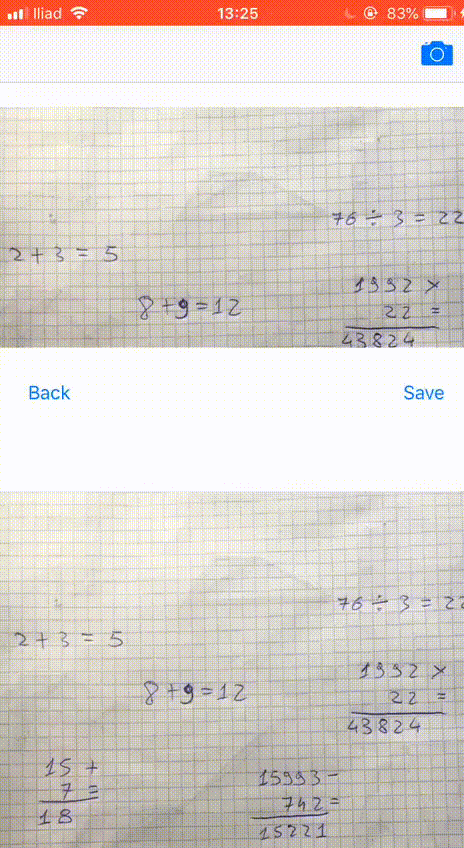 Iliad 13:25 83%
76 ÷ 3 = 22
2 + 3 = 5
1992 ×
8 + 9 = 12
22 =
43824
Back Save
76 ÷ 3 = 22
2 + 3 = 5
1992 ×
8 + 9 = 12
22 =
43824
15 +
7 =
18
15993 -
742 =
15221